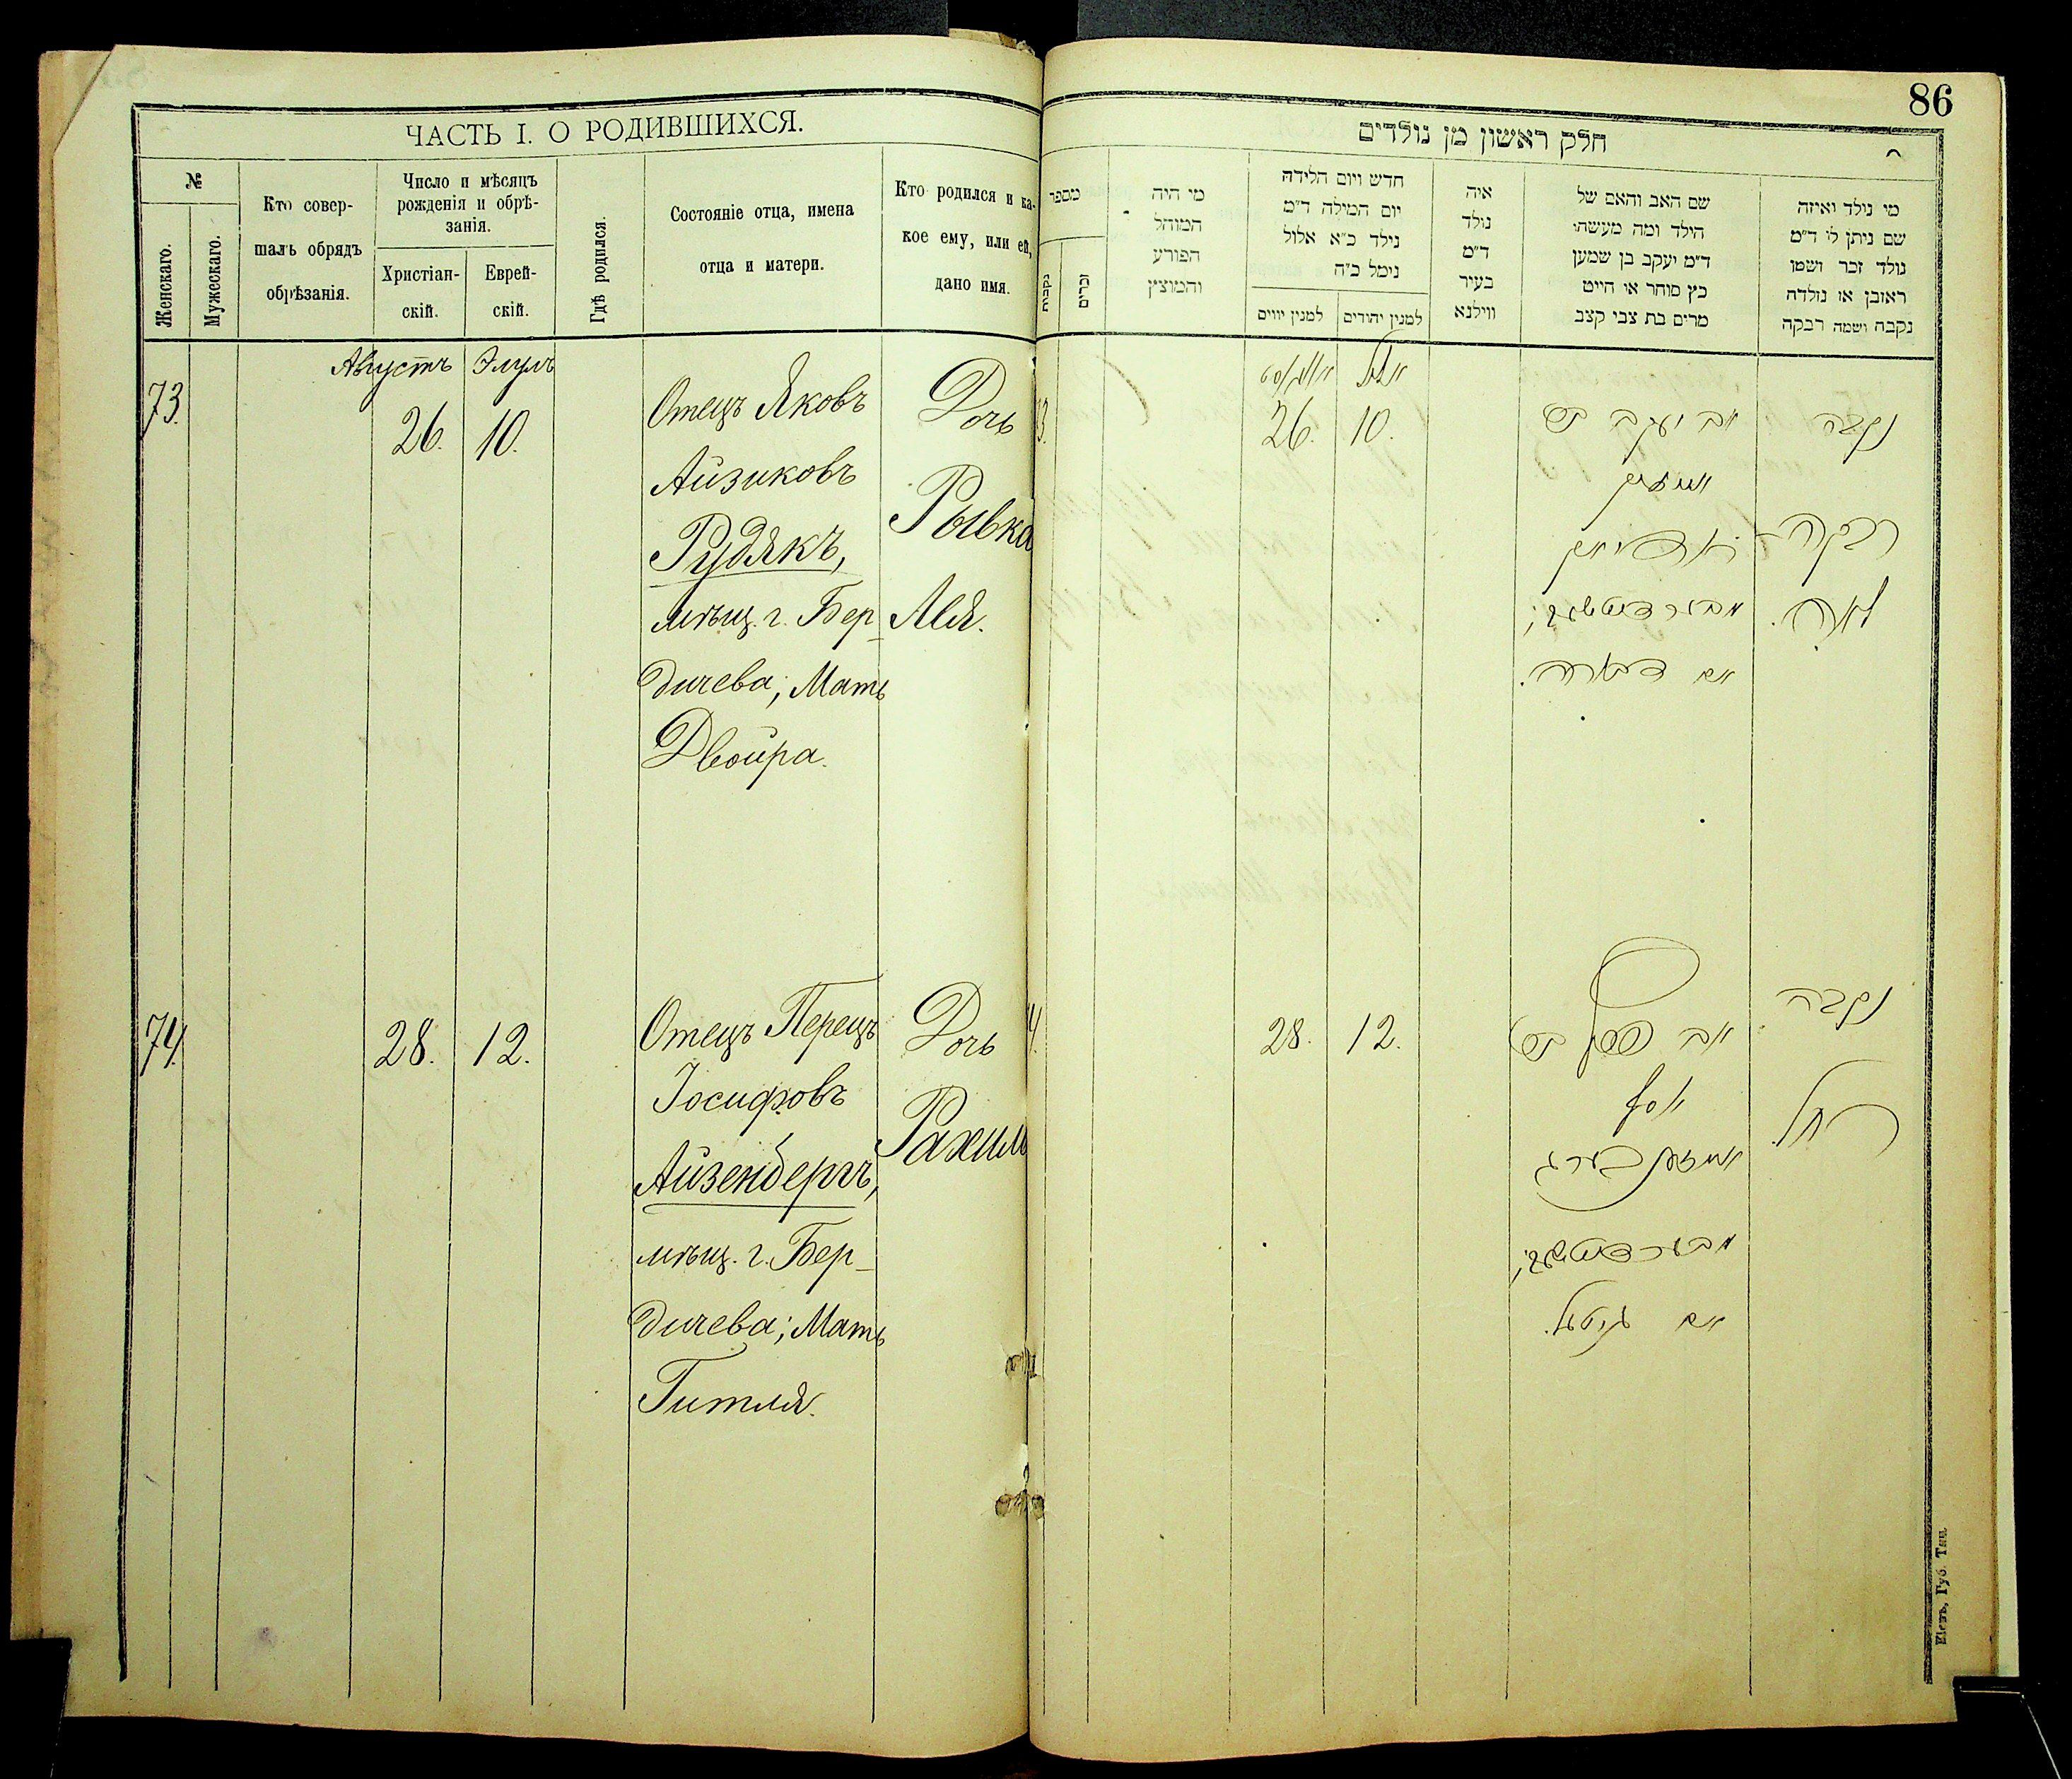 86
ЧАСТЬ I. О РОДИВШИХСЯ.
№
Женскаго.
Мужескаго.
Кто совер-
шалъ обрядъ
обрѣзанія.
Число и мѣсяцъ
рожденія и обрѣ-
занія.
Христіан-
скій.
Еврей-
скій.
Гдѣ родился.
Состояніе отца, имена
отца и матери.
Кто родился и ка-
кое ему, или ей,
дано имя.
Августъ Элулъ
73.
26. 10.
Отецъ Яковъ
Айзиковъ
Рудякъ,
мѣщ. г. Бер-
дичева; Мать
Двойра.
Дочь
Рывка
Лея.
74.
28. 12.
Отецъ Перецъ
Іосифовъ
Айзенбергъ,
мѣщ. г. Бер-
дичева; Мать
Гитля.
Дочь
Рахиль
חלק ראשון מן נולדים
מי נולד ואיזה
שם ניתן לו ד״מ
נולד זכר ושמו
ראובן או נולדה
נקבה ושמה רבקה
שם האב והאם של
הילד ומה מעשהו
ד״מ יעקב בן שמעון
כץ סוחר או חייט
מרים בת צבי קצב
איה
נולד
ד״מ
בעיר
ווילנא
חדש ויום הלידה
יום המילה ד״מ
נולד כ״א אלול
נימל כ״ח
למנין יהודים
למנין יווים
מי היה
המוהל
הפורע
והמוצץ
מספר
זכרים
נקבות
נקבה
רבקה
לאה.
אב יעקב בן
אייזיק
רודיאק
מבערדיטשוב;
אם דבורה.
אלול
10.
26.
3.
נקבה
רחל.
אב פרץ בן
יוסף
אייזענבערג
מבערדיטשוב;
אם גיטל.
12.
28.
4.
Кіевъ, Губ. Тип.